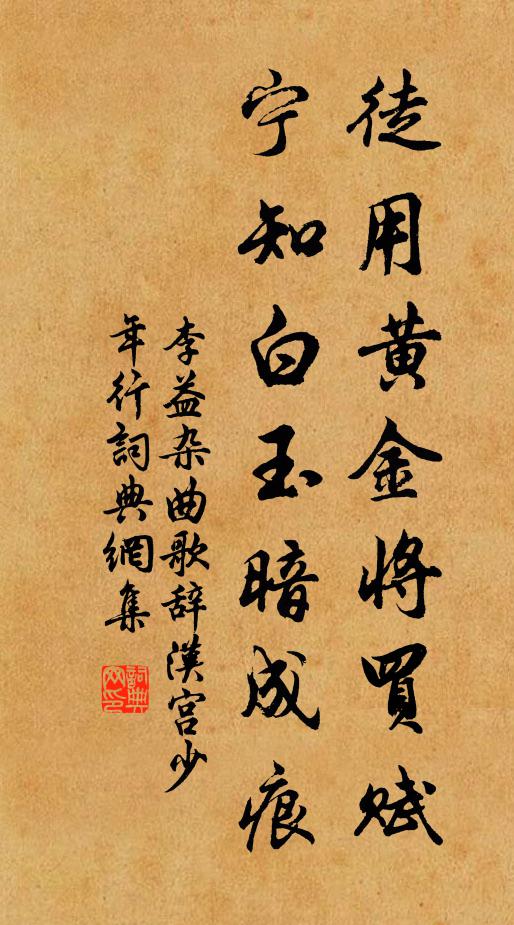 徒用黄金將買賦
宁知白玉暗成痕
李益杂曲歌辞漢宫少
年行詞典網集
詞典
网印